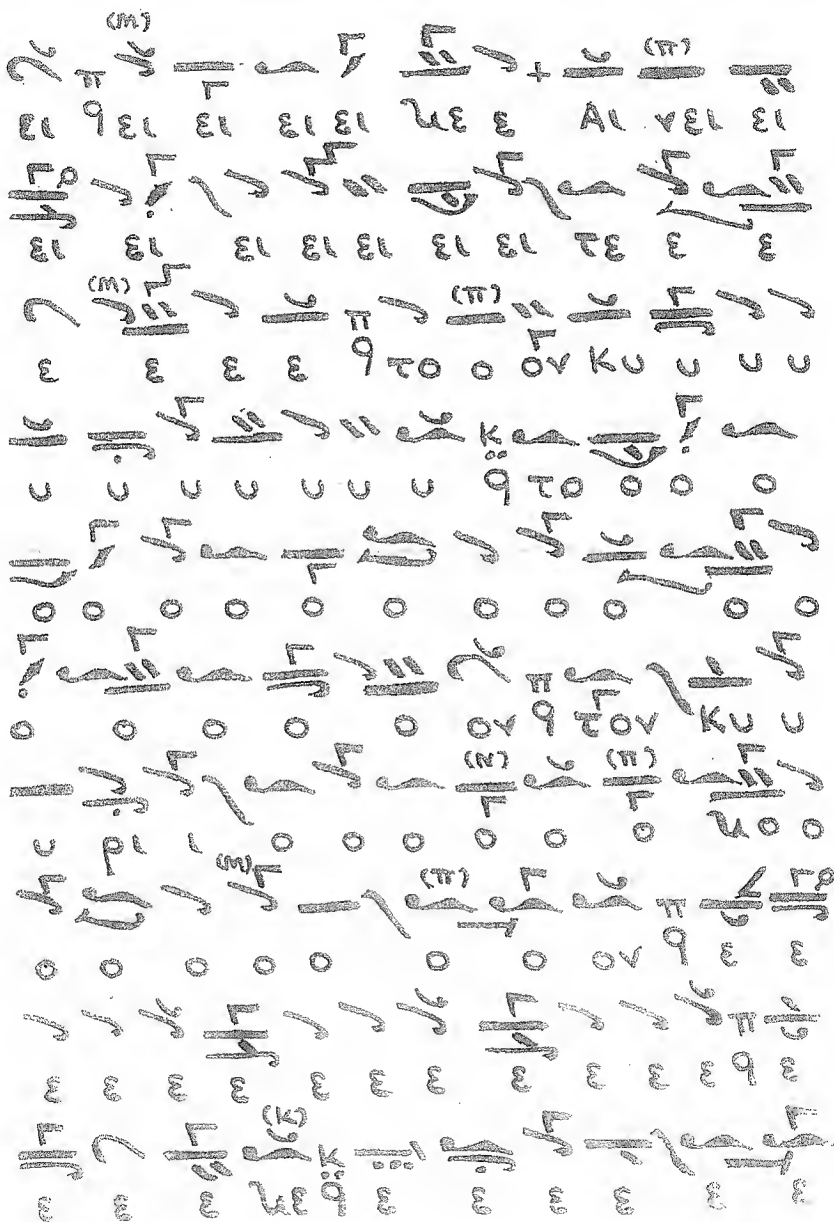 (Μ) (Π)
ει π q ει ει ει ει χε ε Αι νει ει
ει ει ει ει ει ει ει τε ε ε
(Μ) (Π)
ε ε ε ε π q το ο ον Κυ υ υ υ
υ υ υ υ υ υ υ Κ q το ο ο ο
ο ο ο ο ο ο ο ο ο ο ο
ο ο ο ο ο ον π q τον Κυ υ
(Ν) (Π)
υ ρι ι ο ο ο ο ο ο χο ο
(Μ) (Π)
ο ο ο ο ο ο ο ον π q ε ε
ε ε ε ε ε ε ε ε ε ε ε π q ε
(Κ)
ε ε ε χε Κ q ε ε ε ε ε ε